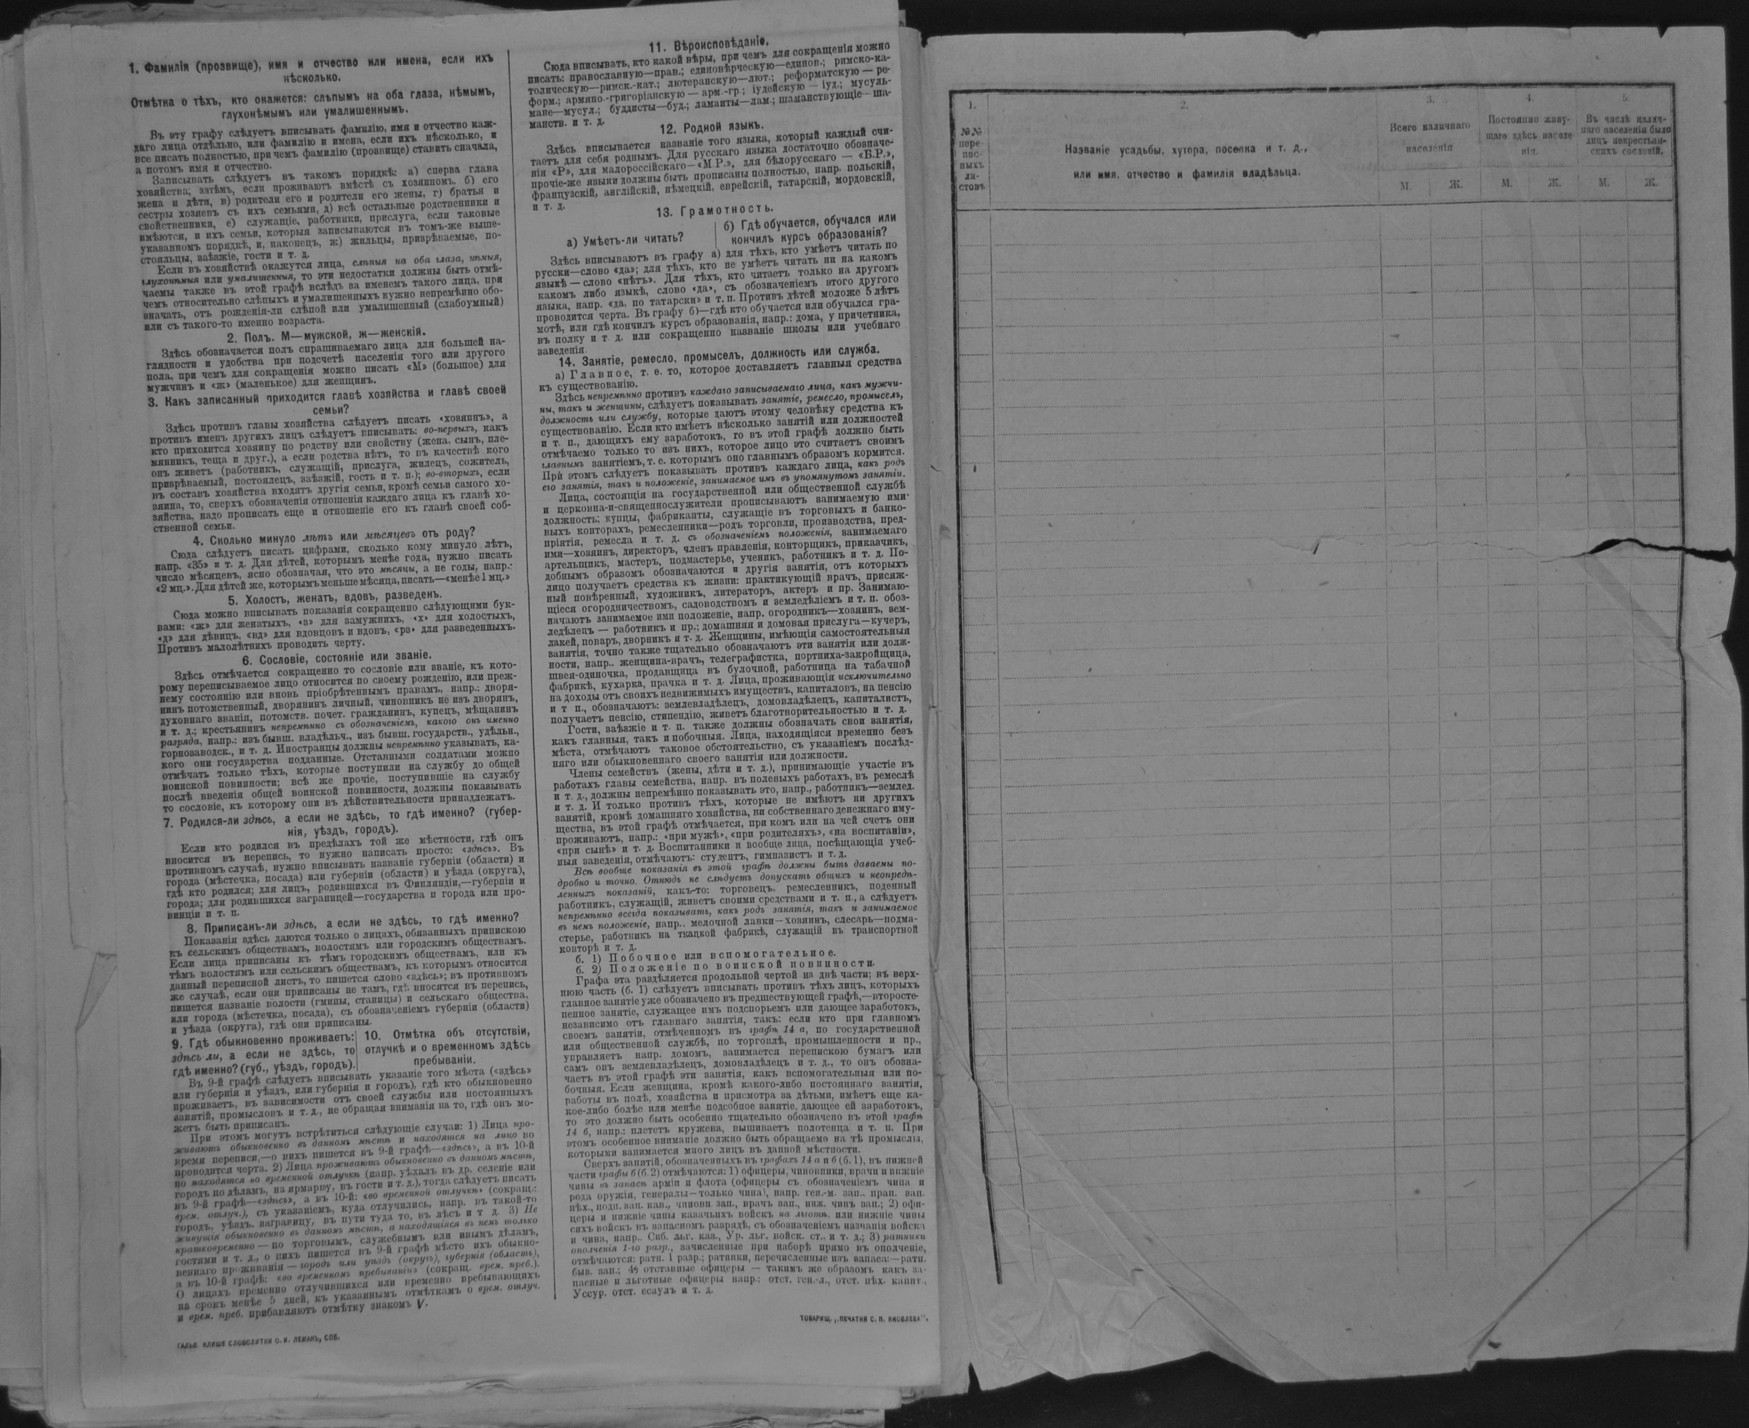 1. Фамилія (прозвище), имя и отчество или имена, если ихъ
нѣсколько.
Отмѣтка о тѣхъ, кто окажется: слѣпымъ на оба глаза, нѣмымъ,
глухонѣмымъ или умалишеннымъ.
Въ эту графу слѣдуетъ вписывать фамилію, имя и отчество каж-
даго лица отдѣльно, или фамилію и имена, если ихъ нѣсколько, и
все писать полностью, при чемъ фамилію (прозвище) ставить сначала,
а потомъ имя и отчество.
Записывать слѣдуетъ въ такомъ порядкѣ: а) сперва глава
хозяйства; затѣмъ, если проживаютъ вмѣстѣ съ хозяиномъ, б) его
жена и дѣти, в) родители его и родители его жены, г) братья и
сестры хозяевъ съ ихъ семьями, д) всѣ остальные родственники и
свойственники, е) служащіе, работники, прислуга, если таковые
имѣются, и ихъ семьи, которыя записываются въ томъ-же выше-
указанномъ порядкѣ, и, наконецъ, ж) жильцы, призрѣваемые, по-
стояльцы, заѣзжіе, гости и т. д.
Если въ хозяйствѣ окажутся лица, слѣпыя на оба глаза, нѣмыя,
глухонѣмыя или умалишенныя, то эти недостатки должны быть отмѣ-
чаемы также въ этой графѣ вслѣдъ за именемъ такого лица, при
чемъ относительно слѣпыхъ и умалишенныхъ нужно непремѣнно обо-
значать, отъ рожденія-ли слѣпой или умалишенный (слабоумный)
или съ такого-то именно возраста.
2. Полъ. М—мужской, ж—женскій.
Здѣсь обозначается полъ спрашиваемаго лица для большей на-
глядности и удобства при подсчетѣ населенія того или другого
пола, при чемъ для сокращенія можно писать «М» (большое) для
мужчинъ и «ж» (маленькое) для женщинъ.
3. Какъ записанный приходится главѣ хозяйства и главѣ своей
семьи?
Здѣсь противъ главы хозяйства слѣдуетъ писать «хозяинъ», а
противъ именъ другихъ лицъ слѣдуетъ вписывать: во-первыхъ, какъ
кто приходится хозяину по родству или свойству (жена, сынъ, пле-
мянникъ, теща и друг.), а если родства нѣтъ, то въ качествѣ кого
онъ живетъ (работникъ, служащій, прислуга, жилецъ, сожитель,
призрѣваемый, постоялецъ, заѣзжій, гость и т. п.); во-вторыхъ, если
въ составъ хозяйства входятъ другія семьи, кромѣ семьи самого хо-
зяина, то, сверхъ обозначенія отношенія каждаго лица къ главѣ хо-
зяйства, надо прописать еще и отношеніе его къ главѣ своей соб-
ственной семьи.
4. Сколько минуло лѣтъ или мѣсяцевъ отъ роду?
Сюда слѣдуетъ писать цифрами, сколько кому минуло лѣтъ,
напр. «35» и т. д. Для дѣтей, которымъ менѣе года, нужно писать
число мѣсяцевъ, ясно обозначая, что это мѣсяцы, а не годы, напр.:
«2 мц.». Для дѣтей же, которымъ меньше мѣсяца, писать—«менѣе 1 мц.»
5. Холостъ, женатъ, вдовъ, разведенъ.
Сюда можно вписывать показанія сокращенно слѣдующими бук-
вами: «ж» для женатыхъ, «з» для замужнихъ, «х» для холостыхъ,
«д» для дѣвицъ, «вд» для вдовцовъ и вдовъ, «рз» для разведенныхъ.
Противъ малолѣтнихъ проводить черту.
6. Сословіе, состояніе или званіе.
Здѣсь отмѣчается сокращенно то сословіе или званіе, къ кото-
рому переписываемое лицо относится по своему рожденію, или преж-
нему состоянію или вновь пріобрѣтеннымъ правамъ, напр.: дворя-
нинъ потомственный, дворянинъ личный, чиновникъ не изъ дворянъ,
духовнаго званія, потомств. почет. гражданинъ, купецъ, мѣщанинъ
и т. д.; крестьянинъ непремѣнно съ обозначеніемъ, какого онъ именно
разряда, напр.: изъ бывш. владѣльч., изъ бывш. государств., удѣльн.,
горнозаводск., и т. д. Иностранцы должны непремѣнно указывать, ка-
кого они государства подданные. Отставными солдатами можно
отмѣчать только тѣхъ, которые поступили на службу до общей
воинской повинности; всѣ же прочіе, поступившіе на службу
послѣ введенія общей воинской повинности, должны показывать
то сословіе, къ которому они въ дѣйствительности принадлежатъ.
7. Родился-ли здѣсь, а если не здѣсь, то гдѣ именно? (губер-
нія, уѣздъ, городъ).
Если кто родился въ предѣлахъ той же мѣстности, гдѣ онъ
вносится въ перепись, то нужно написать просто: «здѣсь». Въ
противномъ случаѣ, нужно вписывать названіе губерніи (области) и
города (мѣстечка, посада) или губерніи (области) и уѣзда (округа),
гдѣ кто родился; для лицъ, родившихся въ Финляндіи,—губерніи и
города; для родившихся заграницей—государства и города или про-
винціи и т. п.
8. Приписанъ-ли здѣсь, а если не здѣсь, то гдѣ именно?
Показанія здѣсь даются только о лицахъ, обязанныхъ припискою
къ сельскимъ обществамъ, волостямъ или городскимъ обществамъ.
Если лица приписаны къ тѣмъ городскимъ обществамъ, или къ
тѣмъ волостямъ или сельскимъ обществамъ, къ которымъ относится
данный переписной листъ, то пишется слово «здѣсь»; въ противномъ
же случаѣ, если они приписаны не тамъ, гдѣ вносятся въ перепись,
пишется названіе волости (гмины, станицы) и сельскаго общества,
или города (мѣстечка, посада), съ обозначеніемъ губерніи (области)
и уѣзда (округа), гдѣ они приписаны.
9. Гдѣ обыкновенно проживаетъ:
здѣсь ли, а если не здѣсь, то
гдѣ именно? (губ., уѣздъ, городъ).
10. Отмѣтка объ отсутствіи,
отлучкѣ и о временномъ здѣсь
пребываніи.
Въ 9-й графѣ слѣдуетъ вписывать указаніе того мѣста («здѣсь»
или губернія и уѣздъ, или губернія и городъ), гдѣ кто обыкновенно
проживаетъ, въ зависимости отъ своей службы или постоянныхъ
занятій, промысловъ и т. д., не обращая вниманія на то, гдѣ онъ мо-
жетъ быть приписанъ.
При этомъ могутъ встрѣтиться слѣдующіе случаи: 1) Лица про-
живаютъ обыкновенно въ данномъ мѣстѣ и находятся на лицо во
время переписи,—о нихъ пишется въ 9-й графѣ—«здѣсь», а въ 10-й
проводится черта. 2) Лица проживаютъ обыкновенно въ данномъ мѣстѣ,
но находятся во временной отлучкѣ (напр. уѣхалъ въ др. селеніе или
городъ по дѣламъ, на ярмарку, въ гости и т. д.), тогда слѣдуетъ писать
въ 9-й графѣ—«здѣсь», а въ 10-й: «во временной отлучкѣ» (сокращ.:
врем. отлуч.), съ указаніемъ, куда отлучились, напр. въ такой-то
городъ, уѣздъ, заграницу, въ пути туда то, въ лѣсъ и т д. 3) Не
живущія обыкновенно въ данномъ мѣстѣ, а находящіяся въ немъ только
кратковременно—по торговымъ, служебнымъ или инымъ дѣламъ,
гостями и т. д., о нихъ пишется въ 9-й графѣ мѣсто ихъ обыкно-
веннаго проживанія—городъ или уѣздъ (округъ), губернія (область),
а въ 10-й графѣ: «во временномъ пребываніи» (сокращ. врем. преб.).
О лицахъ временно отлучившихся или временно пребывающихъ
на срокъ менѣе 5 дней, къ указаннымъ отмѣткамъ о врем. отлуч.
и врем. преб. прибавляютъ отмѣтку знакомъ V.
ГАЛЬВ. КЛИШЕ СЛОВОЛИТНИ О. И. ЛЕМАНЪ, СПБ.
11. Вѣроисповѣданіе.
Сюда вписывать, кто какой вѣры, при чемъ для сокращенія можно
писать: православную—прав.; единовѣрческую—единов.; римско-ка-
толическую—римск.-кат.; лютеранскую—лют.; реформатскую—ре-
форм.; армяно-григоріанскую—арм.-гр.; іудейскую—іуд.; мусуль-
мане—мусул.; буддисты—буд.; ламаиты—лам.; шаманствующіе—ша-
манств. и т. д.
12. Родной языкъ.
Здѣсь вписывается названіе того языка, который каждый счи-
таетъ для себя роднымъ. Для русскаго языка достаточно обозначе-
нія «Р», для малороссійскаго—«М Р.», для бѣлорусскаго — «Б.Р.»,
прочіе-же языки должны быть прописаны полностью, напр. польскій,
французскій, англійскій, нѣмецкій, еврейскій, татарскій, мордовскій,
и т. д.
13. Грамотность.
а) Умѣетъ-ли читать?
б) Гдѣ обучается, обучался или
кончилъ курсъ образованія?
Здѣсь вписываютъ въ графу а) для тѣхъ, кто умѣетъ читать по
русски—слово «да»; для тѣхъ, кто не умѣетъ читать ни на какомъ
языкѣ—слово «нѣтъ». Для тѣхъ, кто читаетъ только на другомъ
какомъ либо языкѣ, слово «да», съ обозначеніемъ этого другого
языка, напр. «да, по татарски» и т. п. Противъ дѣтей моложе 5 лѣтъ
проводится черта. Въ графу б)—гдѣ кто обучается или обучался гра-
мотѣ, или гдѣ кончилъ курсъ образованія, напр.: дома, у причетника,
въ полку и т. д. или сокращенно названіе школы или учебнаго
заведенія.
14. Занятіе, ремесло, промыселъ, должность или служба.
а) Главное, т. е. то, которое доставляетъ главныя средства
къ существованію.
Здѣсь непремѣнно противъ каждаго записываемаго лица, какъ мужчи-
ны, такъ и женщины, слѣдуетъ показывать занятіе, ремесло, промыселъ,
должность или службу, которые даютъ этому человѣку средства къ
существованію. Если кто имѣетъ нѣсколько занятій или должностей
и т. п., дающихъ ему заработокъ, то въ этой графѣ должно быть
отмѣчаемо только то изъ нихъ, которое лицо это считаетъ своимъ
главнымъ занятіемъ, т. е. которымъ оно главнымъ образомъ кормится.
При этомъ слѣдуетъ показывать противъ каждаго лица, какъ родъ
его занятія, такъ и положеніе, занимаемое имъ въ упомянутомъ занятіи.
Лица, состоящія на государственной или общественной службѣ
и церковно-и-священнослужители прописываютъ занимаемую ими
должность; купцы, фабриканты, служащіе въ торговыхъ и банко-
выхъ конторахъ, ремесленники—родъ торговли, производства, пред-
пріятія, ремесла и т. д. съ обозначеніемъ положенія, занимаемаго
ими—хозяинъ, директоръ, членъ правленія, конторщикъ, приказчикъ,
артельщикъ, мастеръ, подмастерье, ученикъ, работникъ и т. д. По-
добнымъ образомъ обозначаются и другія занятія, отъ которыхъ
лицо получаетъ средства къ жизни: практикующій врачъ, присяж-
ный повѣренный, художникъ, литераторъ, актеръ и пр. Занимаю-
щіеся огородничествомъ, садоводствомъ и земледѣліемъ и т. п. обоз-
начаютъ занимаемое ими положеніе, напр. огородникъ—хозяинъ, зем-
ледѣлецъ — работникъ и пр.; домашняя и домовая прислуга—кучеръ,
лакей, поваръ, дворникъ и т. д. Женщины, имѣющія самостоятельныя
занятія, точно также тщательно обозначаютъ эти занятія или долж-
ности, напр.. женщина-врачъ, телеграфистка, портниха-закройщица,
швея-одиночка, продавщица въ булочной, работница на табачной
фабрикѣ, кухарка, прачка и т. д. Лица, проживающія исключительно
на доходы отъ своихъ недвижимыхъ имуществъ, капиталовъ, на пенсію
и т п., обозначаютъ: землевладѣлецъ, домовладѣлецъ, капиталистъ,
получаетъ пенсію, стипендію, живетъ благотворительностью и т. д.
Гости, заѣзжіе и т. п. также должны обозначать свои занятія,
какъ главныя, такъ и побочныя. Лица, находящіяся временно безъ
мѣста, отмѣчаютъ таковое обстоятельство, съ указаніемъ послѣд-
няго или обыкновеннаго своего занятія или должности.
Члены семействъ (жены, дѣти и т. д.), принимающіе участіе въ
работахъ главы семейства, напр. въ полевыхъ работахъ, въ ремеслѣ
и т. д., должны непремѣнно показывать это, напр., работникъ—землед.
и т. д. И только противъ тѣхъ, которые не имѣютъ ни другихъ
занятій, кромѣ домашняго хозяйства, ни собственнаго денежнаго иму-
щества, въ этой графѣ отмѣчается, при комъ или на чей счетъ они
проживаютъ, напр.: «при мужѣ», «при родителяхъ», «на воспитаніи»,
«при сынѣ» и т. д. Воспитанники и вообще лица, посѣщающія учеб-
ныя заведенія, отмѣчаютъ: студентъ, гимназистъ и т. д.
Всѣ вообще показанія въ этой графѣ должны быть даваемы по-
дробно и точно. Отнюдь не слѣдуетъ допускать общихъ и неопредѣ-
ленныхъ показаній, какъ-то: торговецъ, ремесленникъ, поденный
работникъ, служащій, живетъ своими средствами и т. п., а слѣдуетъ
непремѣнно всегда показывать, какъ родъ занятія, такъ и занимаемое
въ немъ положеніе, напр.. мелочной лавки—хозяинъ, слесарь—подма-
стерье, работникъ на ткацкой фабрикѣ, служащій въ транспортной
конторѣ и т. д.
б. 1) Побочное или вспомогательное.
б. 2) Положеніе по воинской повинности.
Графа эта раздѣляется продольной чертой на двѣ части; въ верх-
нюю часть (б. 1) слѣдуетъ вписывать противъ тѣхъ лицъ, которыхъ
главное занятіе уже обозначено въ предшествующей графѣ,—второсте-
пенное занятіе, служащее имъ подспорьемъ или дающее заработокъ,
независимо отъ главнаго занятія, такъ: если кто при главномъ
своемъ занятіи, отмѣченномъ въ графѣ 14 а, по государственной
или общественной службѣ, по торговлѣ, промышленности и пр.,
управляетъ напр. домомъ, занимается перепискою бумагъ или
самъ онъ землевладѣлецъ, домовладѣлецъ и т. д., то онъ обозна-
чаетъ въ этой графѣ эти занятія, какъ вспомогательныя или по-
бочныя. Если женщина, кромѣ какого-либо постояннаго занятія,
работы въ полѣ, хозяйства и присмотра за дѣтьми, имѣетъ еще ка-
кое-либо болѣе или менѣе подсобное занятіе, дающее ей заработокъ,
то это должно быть особенно тщательно обозначено въ этой графѣ
14 б, напр.: плететъ кружева, вышиваетъ полотенца и т. п. При
этомъ особенное вниманіе должно быть обращаемо на тѣ промыслы,
которыми занимается много лицъ въ данной мѣстности.
Сверхъ занятій, обозначенныхъ въ графахъ 14 а и б (б. 1), въ нижней
части графы б (б. 2) отмѣчаются: 1) офицеры, чиновники, врачи и нижніе
чины въ запасѣ арміи и флота (офицеры съ обозначеніемъ чина и
рода оружія, генералы—только чина), напр. ген.-м. зап., прап. зап.
пѣх., подп. зап. кав., чиновн зап., врачъ зап., ниж. чинъ зап.; 2) офи-
церы и нижніе чины казачьихъ войскъ на льготѣ, или нижніе чины
сихъ войскъ въ запасномъ разрядѣ, съ обозначеніемъ названія войска
и чина, напр.. Сиб. льг. каз., Ур. льг. войск. ст.. и т. д.; 3) ратники
ополченія 1-го разр., зачисленные при наборѣ прямо въ ополченіе,
отмѣчаются: ратн. 1 разр.; ратники, перечисленные изъ запаса:—ратн.
быв. зап.; 4) отставные офицеры — такимъ же образомъ какъ за-
пасные и льготные офицеры напр.: отст. ген.-л., отст. пѣх. капит.,
Уссур. отст. есаулъ и т. д.
ТОВАРИЩ. „ПЕЧАТНЯ С. П. ЯКОВЛЕВА".
1.
№№
пере-
пис-
ныхъ
ли-
стовъ
2.
Названіе усадьбы, хутора, поселка и т. д.,
или имя, отчество и фамилія владѣльца.
3.
Всего наличнаго
населенія
М.
Ж.
4.
Постоянно живу-
щаго здѣсь населе
нія.
М.
Ж.
5.
Въ числѣ налич-
наго населенія было
лицъ некрестьян-
скихъ сословій.
М.
Ж.